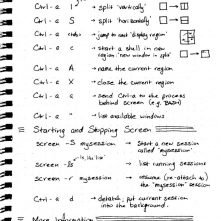 Ctrl - a S → split "vertically"
Ctrl - a → split "horizontally"
Ctrl - a <tab> → jump to next "display region"
Ctrl - a c → start a shell in new
region "new window in split"
Ctrl - a A → name the current region
Ctrl - a X → close the current region
Ctrl - a a → send Ctrl-a to the process
behind screen (e.g. BASH)
Ctrl - a " → list available windows
≡ Starting and Stopping Screen
screen -S mysession → Start a new session
called "mysession"
screen -ls → list running sessions
screen -r mysession → resume (re-attach) to
the "mysession" session
Ctrl - a d → detatch; put current session
into the background.
≡ More Information